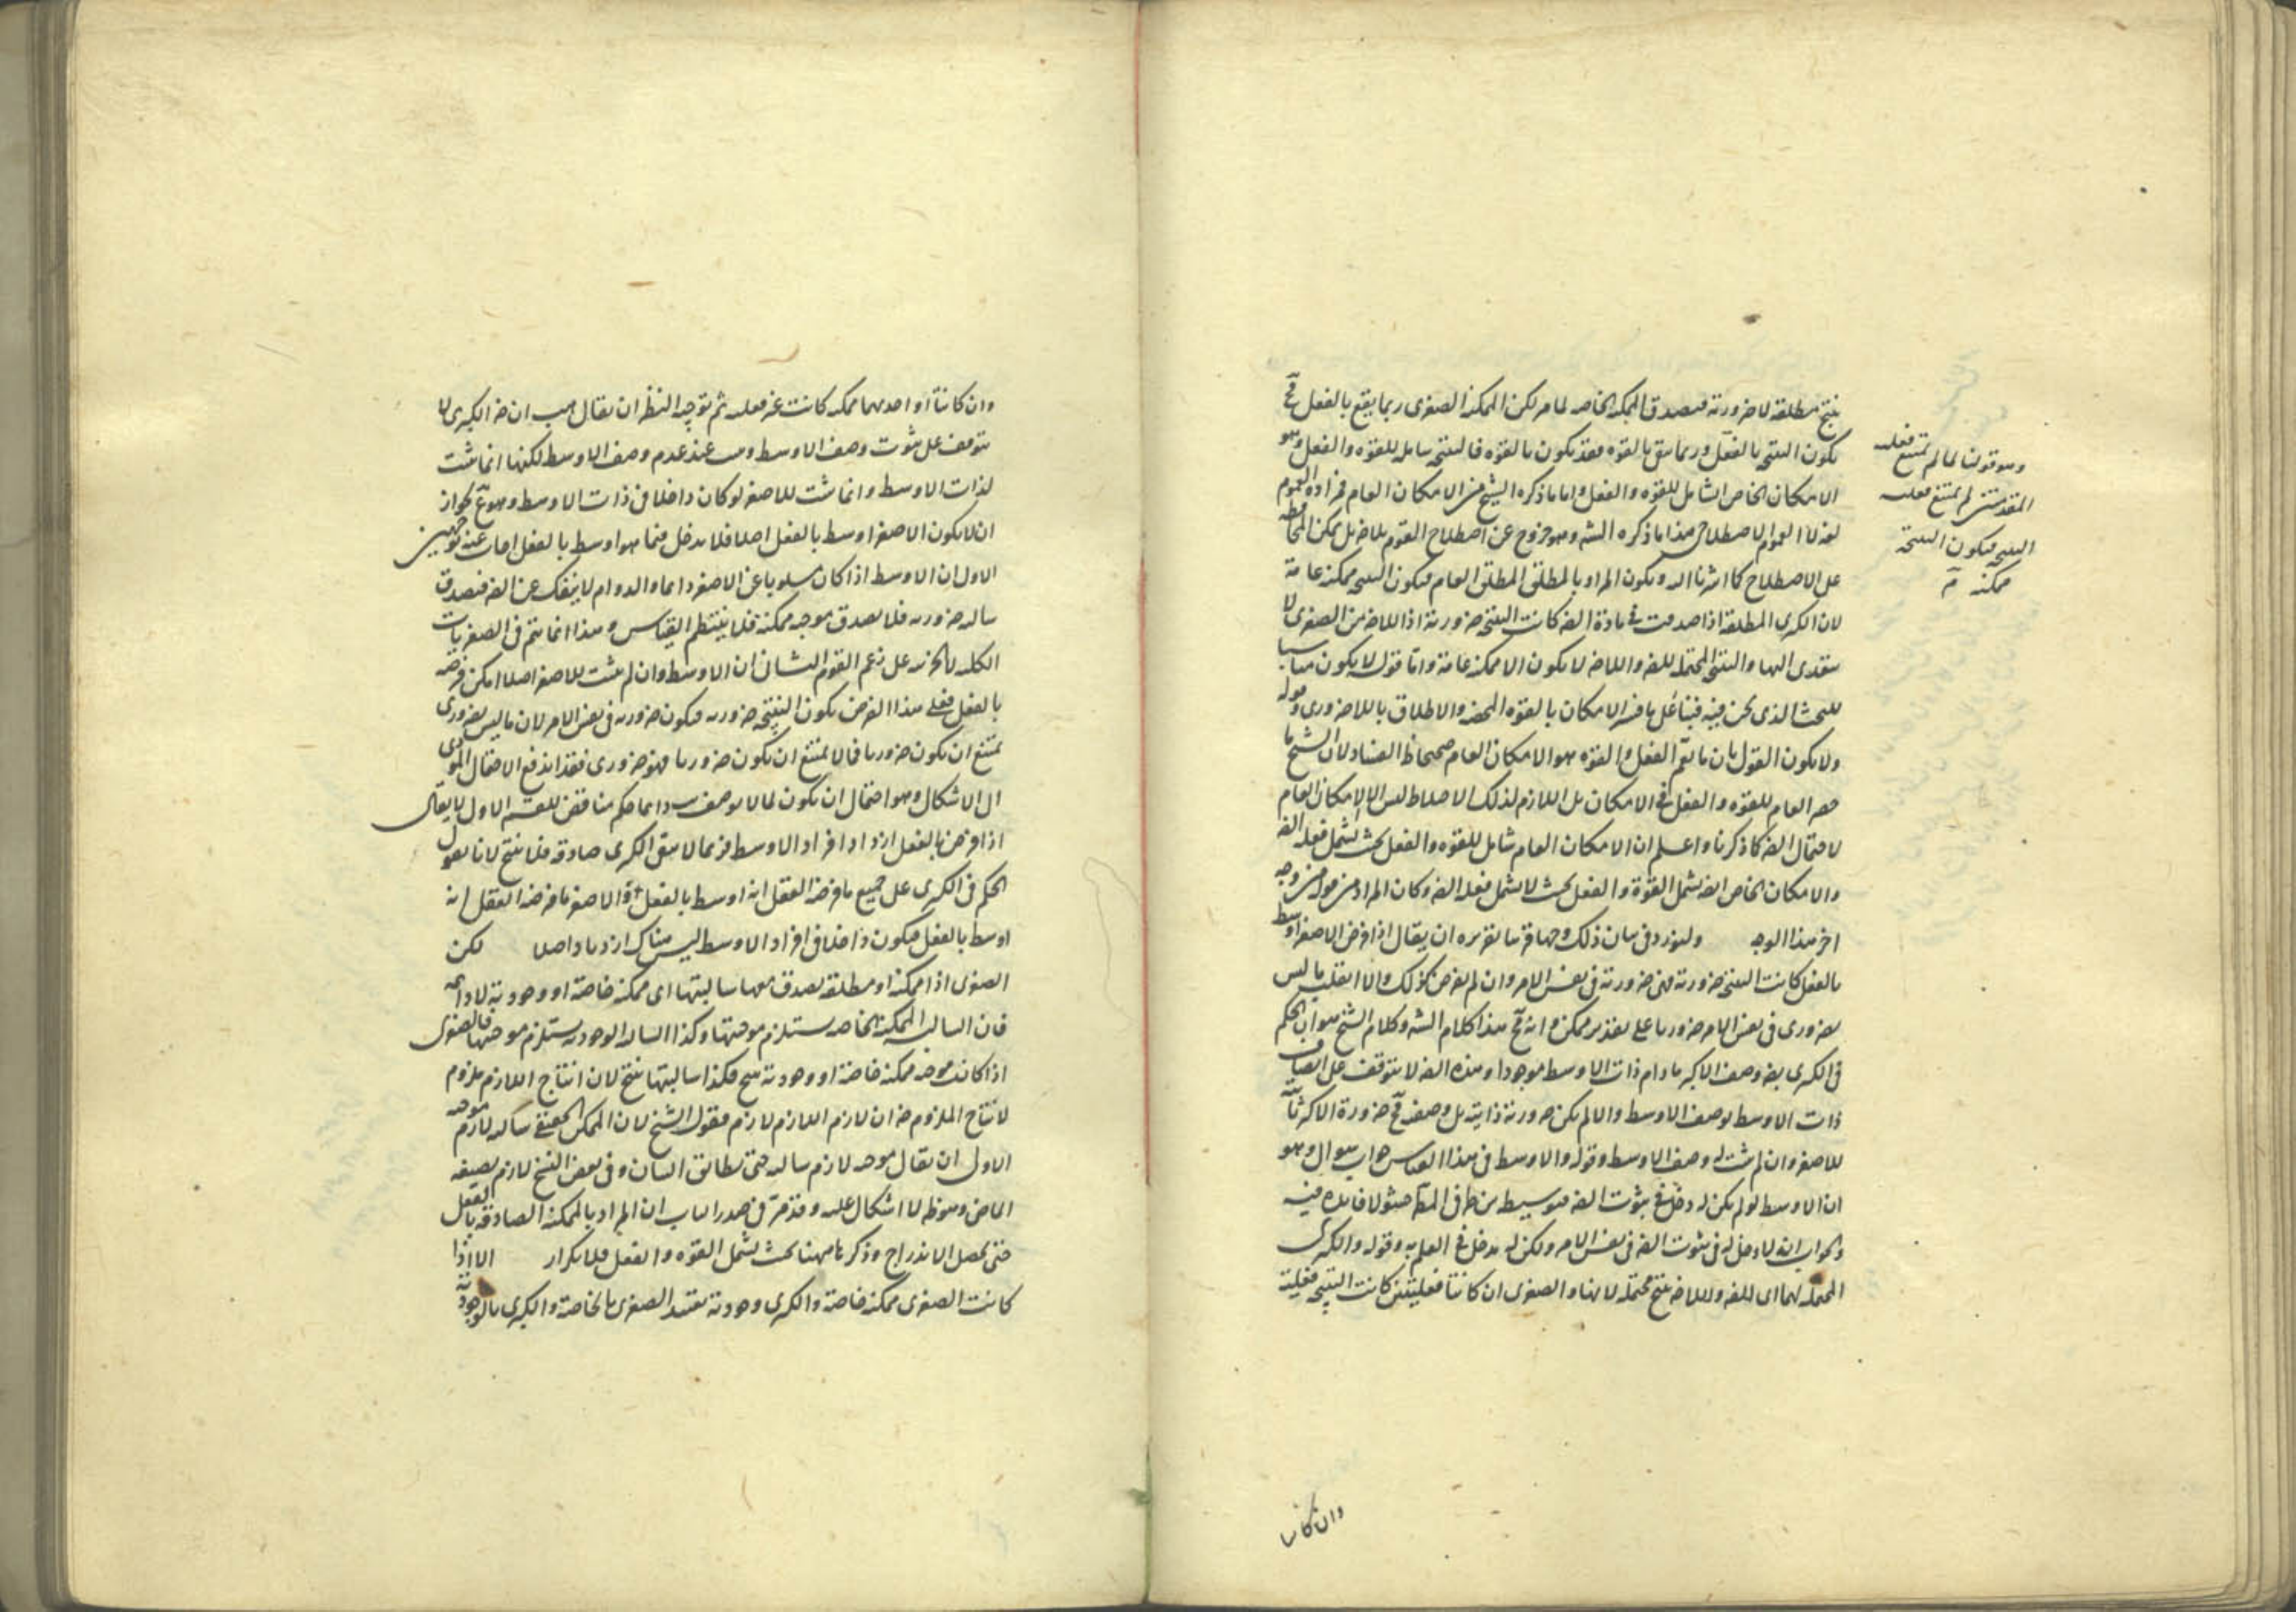 ينتج مطلقة لا ضرورته فيصدق الممكنة الخاصه لما مر لكن الممكنة الصغرى ربما يقع بالفعل فح
يكون النتيجه بالفعل وربما يبقى بالقوه فقد يكون بالقوه فالنتيجه شامله للقوه والفعل وهو
الامكان الخاص الشامل للقوه والفعل واما ما ذكره الشيخ من الامكان العام فمراده العموم
لغة لا العموم الاصطلاحى هذا ما ذكره الشه وهو خروج عن اصطلاح القوم بلا ضر بل يمكن المحافظه
على الاصطلاح كما اشرنا اليه ويكون المراد بالمطلق المطلق العام فيكون النتيجه ممكنة عامة
لان الكبرى المطلقة اذا صدقت فى مادة الضه كانت النتيجه ضرورته اذا اللاضه من الصغرى لا
يتعدى اليها والنتيجه المحتمله للضه واللاضه لا يكون الا ممكنة عامة واما قوله لا يكون مناسبا
للبحث الذى نحن فيه فبناء على ما فسر الامكان بالقوه المحضه والاطلاق باللاضرورى وقوله
ولا يكون القول بان ما يعم الفعل والقوه هو الامكان العام صحيحا ظ الفساد لان الشيخ ما
حصر العام للقوه والفعل فى الامكان بل اللازم لذلك الاختلاط ليس الا الامكان العام
لاحتمال الضه كما ذكرنا واعلم ان الامكان العام شامل للقوه والفعل بحيث يشمل فعليه الضه
والامكان الخاص ايضه يشمل القوة والفعل بحيث لا يشمل فعليه الضه وكان المراد من قوله من وجه
اخر هذا الوجه ولنورد فى بيان ذلك وجها قريبا تقريره ان يقال اذا فرض الاصغر اوسط
بالفعل كانت النتيجه ضرورته فهى ضرورته فى نفس الامر وان لم يفرض كذلك والا انقلب ما ليس
بضرورى فى نفس الامر ضروريا على تقدير ممكن وانه مح هذا كلام الشه وكلام الشيخ هو ان الحكم
فى الكبرى بضه وصف الاكبر ما دام ذات الاوسط موجودا وهذه الضه لا يتوقف على اتصاف
ذات الاوسط بوصف الاوسط والا لم يكن ضرورته ذاتيه بل وصفيه فح ضرورة الاكبر ثابته
للاصغر وان لم يثبت له وصف الاوسط وقوله والاوسط فى هذا القياس جواب سوال وهو
ان الاوسط لو لم يكن له دخل فى ثبوت الضه فتوسيطه بين طرفى المط حشو لا فايده فيه
والجواب انه لا دخل له فى ثبوت الضه فى نفس الامر ولكن له مدخل فى العلم به وقوله والكبرى
المحتمله لهما اى للضه واللاضه ينتج محتمله لانها والصغرى ان كانتا فعليتين كانت النتيجه فعلية
وهو قولنا لما لم يمتنع فعليه
المقدمتين لم يمتنع فعليه
النتيجه فيكون النتيجه
ممكنه
وان كانتا
وان كانتا او احديهما ممكنه كانت غير فعليه ثم توجيه النظر ان يقال هب ان ضه الكبرى لا
يتوقف على ثبوت وصف الاوسط ويثبت عند عدم وصف الاوسط لكنها انما يثبت
لذات الاوسط وانما يثبت للاصغر لو كان داخلا فى ذات الاوسط وهو مح لجواز
ان لا يكون الاصغر اوسط بالفعل اصلا فلا يدخل فيما هو اوسط بالفعل اجاب عنه بوجهين
الاول ان الاوسط اذا كان مسلوبا عن الاصغر دايما والدوام لا ينفك عن الضه فيصدق
سالبه ضروريه فلا يصدق موجبه ممكنة فلا ينتظم القياس وهذا انما يتم فى الصغريات
الكليه لا الجزئيه على زعم القوم الثانى ان الاوسط وان لم يثبت للاصغر اصلا امكن فرضه
بالفعل فعلى هذا الفرض يكون النتيجه ضروريه فيكون ضروريه فى نفس الامر لان ما ليس بضرورى
يمتنع ان يكون ضروريا فما لا يمتنع ان يكون ضروريا فهو ضرورى فقد اندفع الاحتمال المؤدى
الى الاشكال وهو احتمال ان يكون لما لا يوصف ب دايما حكم مناقض للقسم الاول لا يقال
اذا فرض بالفعل ازداد افراد الاوسط فربما لا يبقى الكبرى صادقه فلا ينتج لانا نقول
الحكم فى الكبرى على جميع ما فرضه العقل انه اوسط بالفعل والاصغر ما فرضه العقل انه
اوسط بالفعل فيكون داخلا فى افراد الاوسط ليس هناك ازدياد اصلا لكن
الصغرى اذا ممكنة او مطلقة يصدق معها سالبتها اى ممكنه خاصة او وجوديه لا دايمه
فان السالبه الممكنة الخاصه يستلزم موجبتها وكذا السالبه الوجوديه يستلزم موجبتها فالصغرى
اذا كانت موجبه ممكنه خاصة او وجوديه ينتج فكذا سالبتها ينتج لان انتاج اللازم ملزوم
لانتاج الملزوم ضه ان لازم اللازم لازم فقول الشيخ لان الممكن الحقيقى سالبه لازم موجبه
الاولى ان يقال موجبه لازم سالبه حتى يطابق البيان وفى بعض النسخ لازم بصيغه
الماضى وهو ظه لا اشكال عليه وقد مر فى صدر الباب ان المراد بالممكنة الصادقه بالفعل
حتى يحصل الاندراج وذكرنا ههنا بحيث يشمل القوه والفعل فلا تكرار الا اذا
كانت الصغرى ممكنه خاصة والكبرى وجوديه تقييد الصغرى بالخاصة والكبرى بالوجوديه